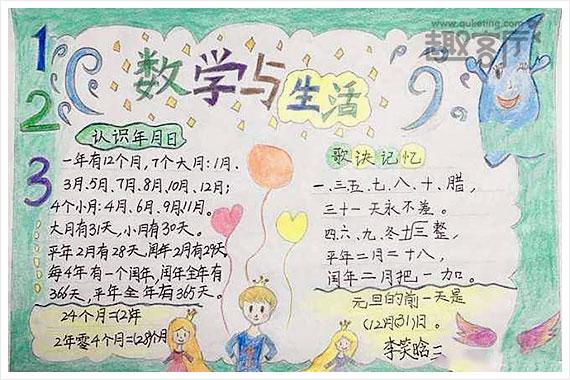 www.quketing.com
趣客厅
1
2
3
数学与生活
认识年月日
一年有12个月,7个大月:1月.
3月.5月、7月、8月、10月、12月;
4个小月:4月、6月、9月、11月。
大月有31天,小月有30天。
平年2月有28天,闰年2月有29天
每4年有一个闰年,闰年全年有
366天,平年全年有365天。
24个月=(2)年
2年零4个月=(28)个月
歌诀记忆
一、三五、七、八、十、腊,
三十一天永不差。
四、六、九、冬三十整,
平年二月二十八,
闰年二月把一加。
元旦的前一天是
(12月31)日。
李笑晗